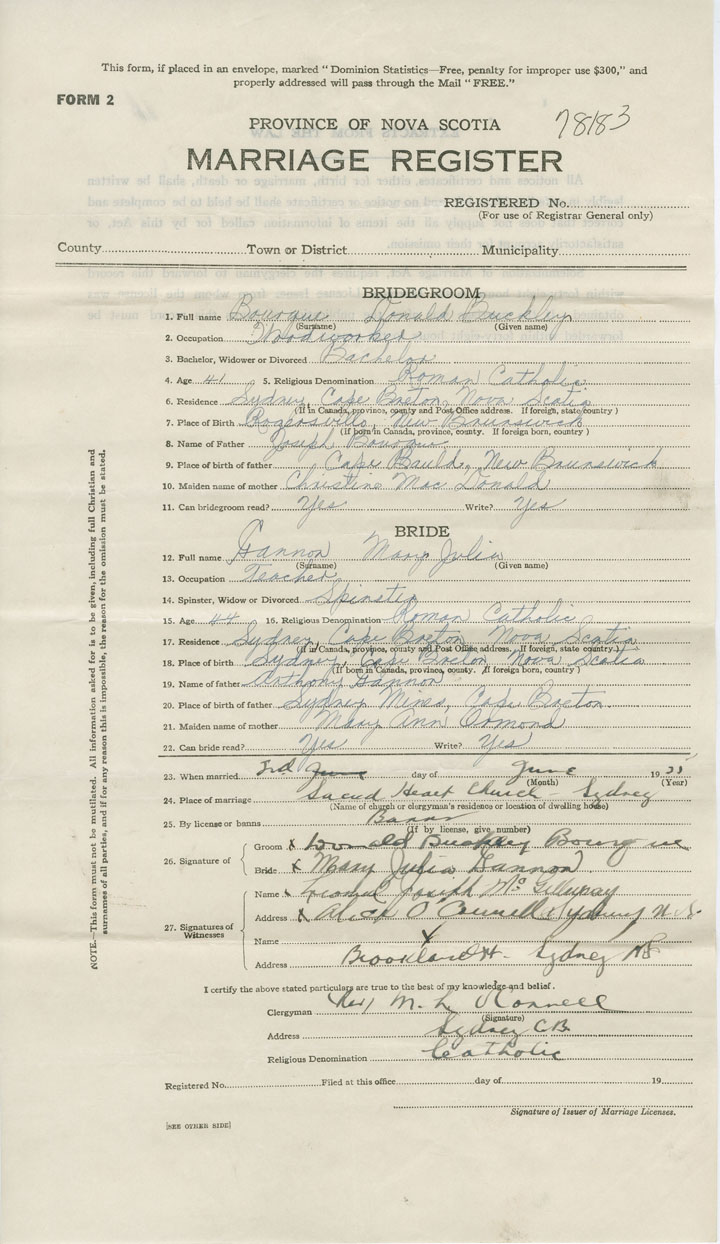 This form, if placed in an envelope, marked "Dominion Statistics—Free, penalty for improper use $300," and
properly addressed will pass through the Mail "FREE."
FORM 2
PROVINCE OF NOVA SCOTIA
78183
MARRIAGE REGISTER
REGISTERED No.
(For use of Registrar General only)
County Town or District Municipality
BRIDEGROOM
1. Full name Bourque Donald Buckley
(Surname) (Given name)
2. Occupation Woodworker
3. Bachelor, Widower or Divorced Bachelor
4. Age 41 5. Religious Denomination Roman Catholic
6. Residence Sydney, Cape Breton, Nova Scotia
(If in Canada, province, county and Post Office address. If foreign, state/country)
7. Place of Birth Rogersville, New Brunswick
(If born in Canada, province, county. If foreign born, country)
8. Name of Father Joseph Bourque
9. Place of birth of father Cape Bauld, New Brunswick
10. Maiden name of mother Christine Mac Donald
11. Can bridegroom read? Yes Write? Yes
BRIDE
12. Full name Gannon Mary Julia
(Surname) (Given name)
13. Occupation Teacher
14. Spinster, Widow or Divorced Spinster
15. Age 44 16. Religious Denomination Roman Catholic
17. Residence Sydney, Cape Breton, Nova Scotia
(If in Canada, province, county and Post Office address. If foreign, state country.)
18. Place of birth Sydney, Cape Breton, Nova Scotia
(If born in Canada, province, county. If foreign born, country)
19. Name of father Anthony Gannon
20. Place of birth of father Sydney Mines, Cape Breton
21. Maiden name of mother Mary Ann Ormond
22. Can bride read? Yes Write? Yes
23. When married 3rd June day of June 19
(Month) (Year)
24. Place of marriage Sacred Heart Church - Sydney
(Name of church or clergyman's residence or location of dwelling house)
25. By license or banns Banns
(If by license, give number)
26. Signature of Groom x Donald Buckley Bourque
Bride x Mary Julia Gannon
27. Signatures of Witnesses
Name x Joseph
Address x O'Connell Sydney N.S.
Name x
Address Brookland St. Sydney NS
I certify the above stated particulars are true to the best of my knowledge and belief.
Clergyman Rev M. L. O'Connell
(Signature)
Address Sydney CB
Religious Denomination Catholic
Registered No. Filed at this office day of 19
Signature of Issuer of Marriage Licenses.
[SEE OTHER SIDE]
NOTE.—This form must not be mutilated. All information asked for is to be given, including full Christian and
surnames of all parties, and if for any reason this is impossible, the reason for the omission must be stated.